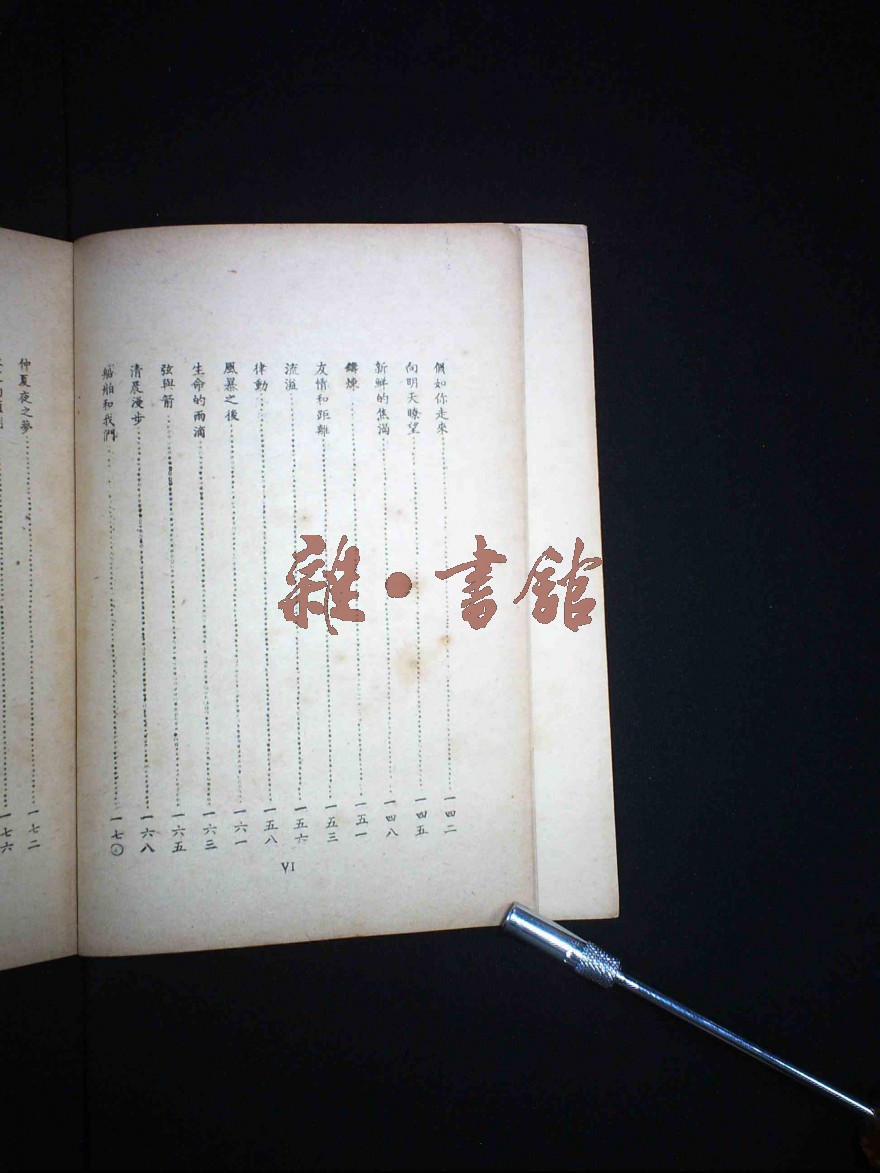 倘如你走來…………一四二
向明天瞭望…………一四五
新鮮的焦渴…………一四八
鑄煉…………一五一
友情和距離…………一五三
流溢…………一五六
律動…………一五八
風暴之後…………一六一
生命的雨滴…………一六三
弦與箭…………一六五
清晨漫步…………一六八
船舶和我們…………一七〇
VI
仲夏夜之夢…………一七二
一七六
雜·書館